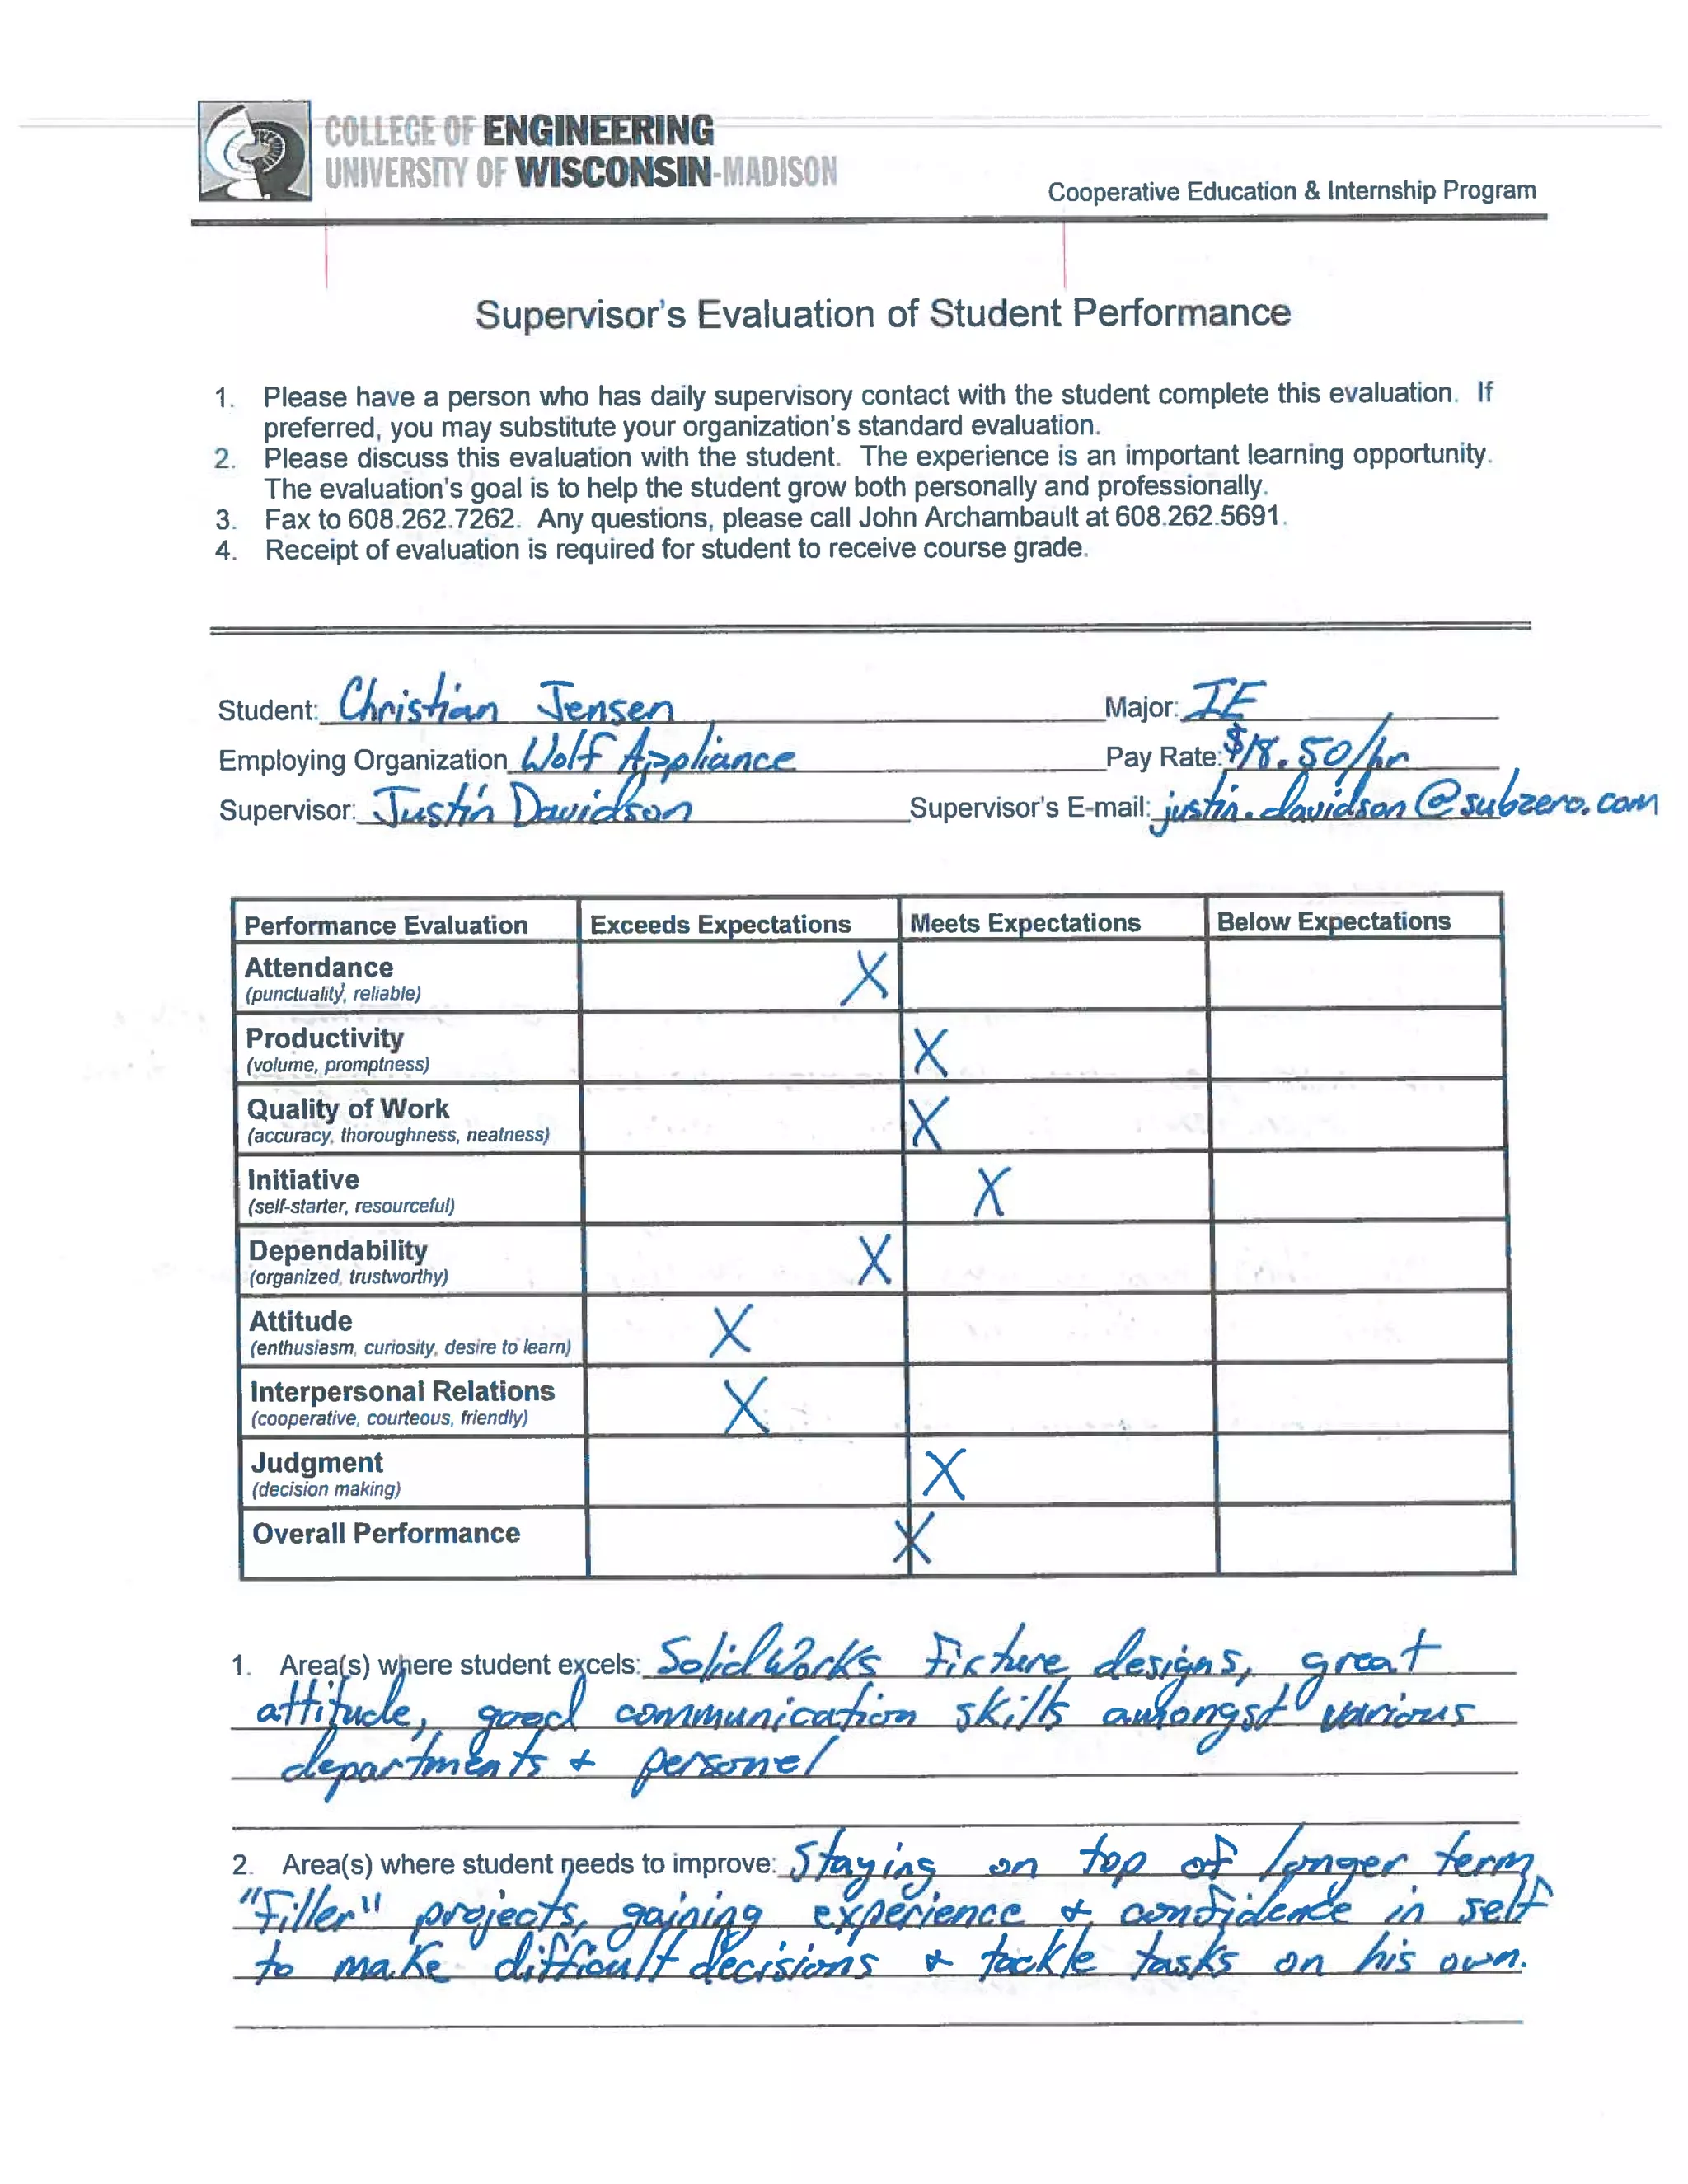 COLLEGE OF ENGINEERING
UNIVERSITY OF WISCONSIN-MADISON
Cooperative Education & Internship Program
Supervisor's Evaluation of Student Performance
1. Please have a person who has daily supervisory contact with the student complete this evaluation. If
preferred, you may substitute your organization's standard evaluation.
2. Please discuss this evaluation with the student. The experience is an important learning opportunity.
The evaluation's goal is to help the student grow both personally and professionally.
3. Fax to 608.262.7262. Any questions, please call John Archambault at 608.262.5691.
4. Receipt of evaluation is required for student to receive course grade.
Student: Christian Jensen Major: IE
Employing Organization Wolf Appliance Pay Rate: $18.50/hr
Supervisor: Justin Davidson Supervisor's E-mail: justin.davidson@subzero.com
Performance Evaluation Exceeds Expectations Meets Expectations Below Expectations
Attendance X
(punctuality, reliable)
Productivity X
(volume, promptness)
Quality of Work X
(accuracy, thoroughness, neatness)
Initiative X
(self-starter, resourceful)
Dependability X
(organized, trustworthy)
Attitude X
(enthusiasm, curiosity, desire to learn)
Interpersonal Relations X
(cooperative, courteous, friendly)
Judgment X
(decision making)
Overall Performance X
1. Area(s) where student excels: SolidWorks Fixture designs, great
attitude, good communication skills amongst various
departments + personel
2. Area(s) where student needs to improve: Staying on top of longer term
"Filler" projects, gaining experience + confidence in self
to make difficult decisions + tackle tasks on his own.